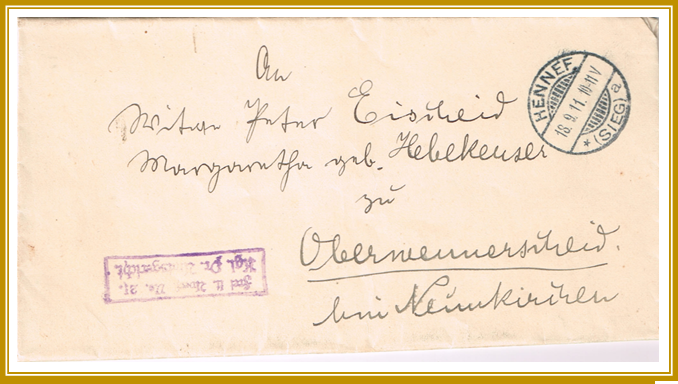 An
Witwe Peter Eischeid
Margaretha geb. Hebekeuser
zu
Oberwennerscheid.
bei Neunkirchen
HENNEF
18.9.11. 10-11V
* (SIEG) a
Frei lt. Avers. No. 21.
Kgl. Pr. Amtsgericht.